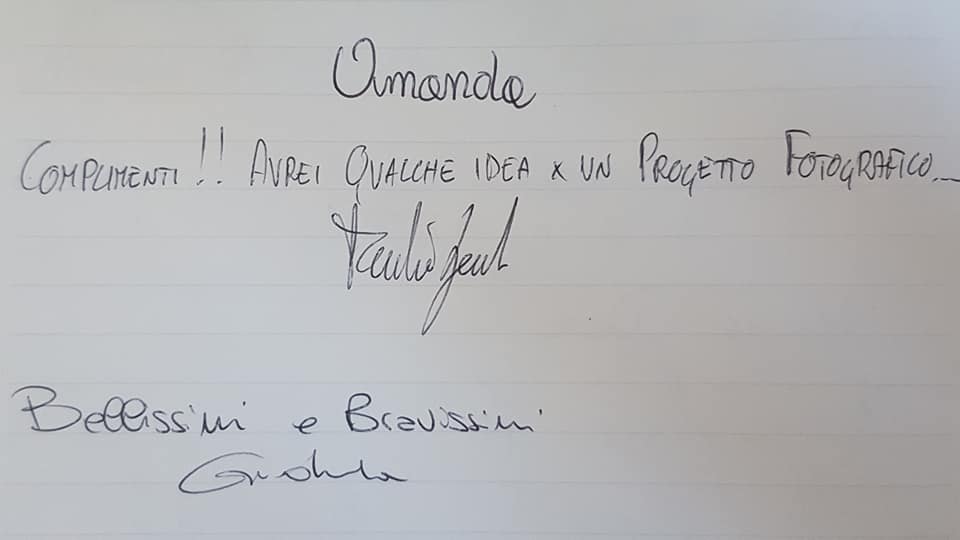 Amanda
COMPLIMENTI!! AVREI QUALCHE IDEA x UN PROGETTO FOTOGRAFICO...
Bellissimi e Bravissimi